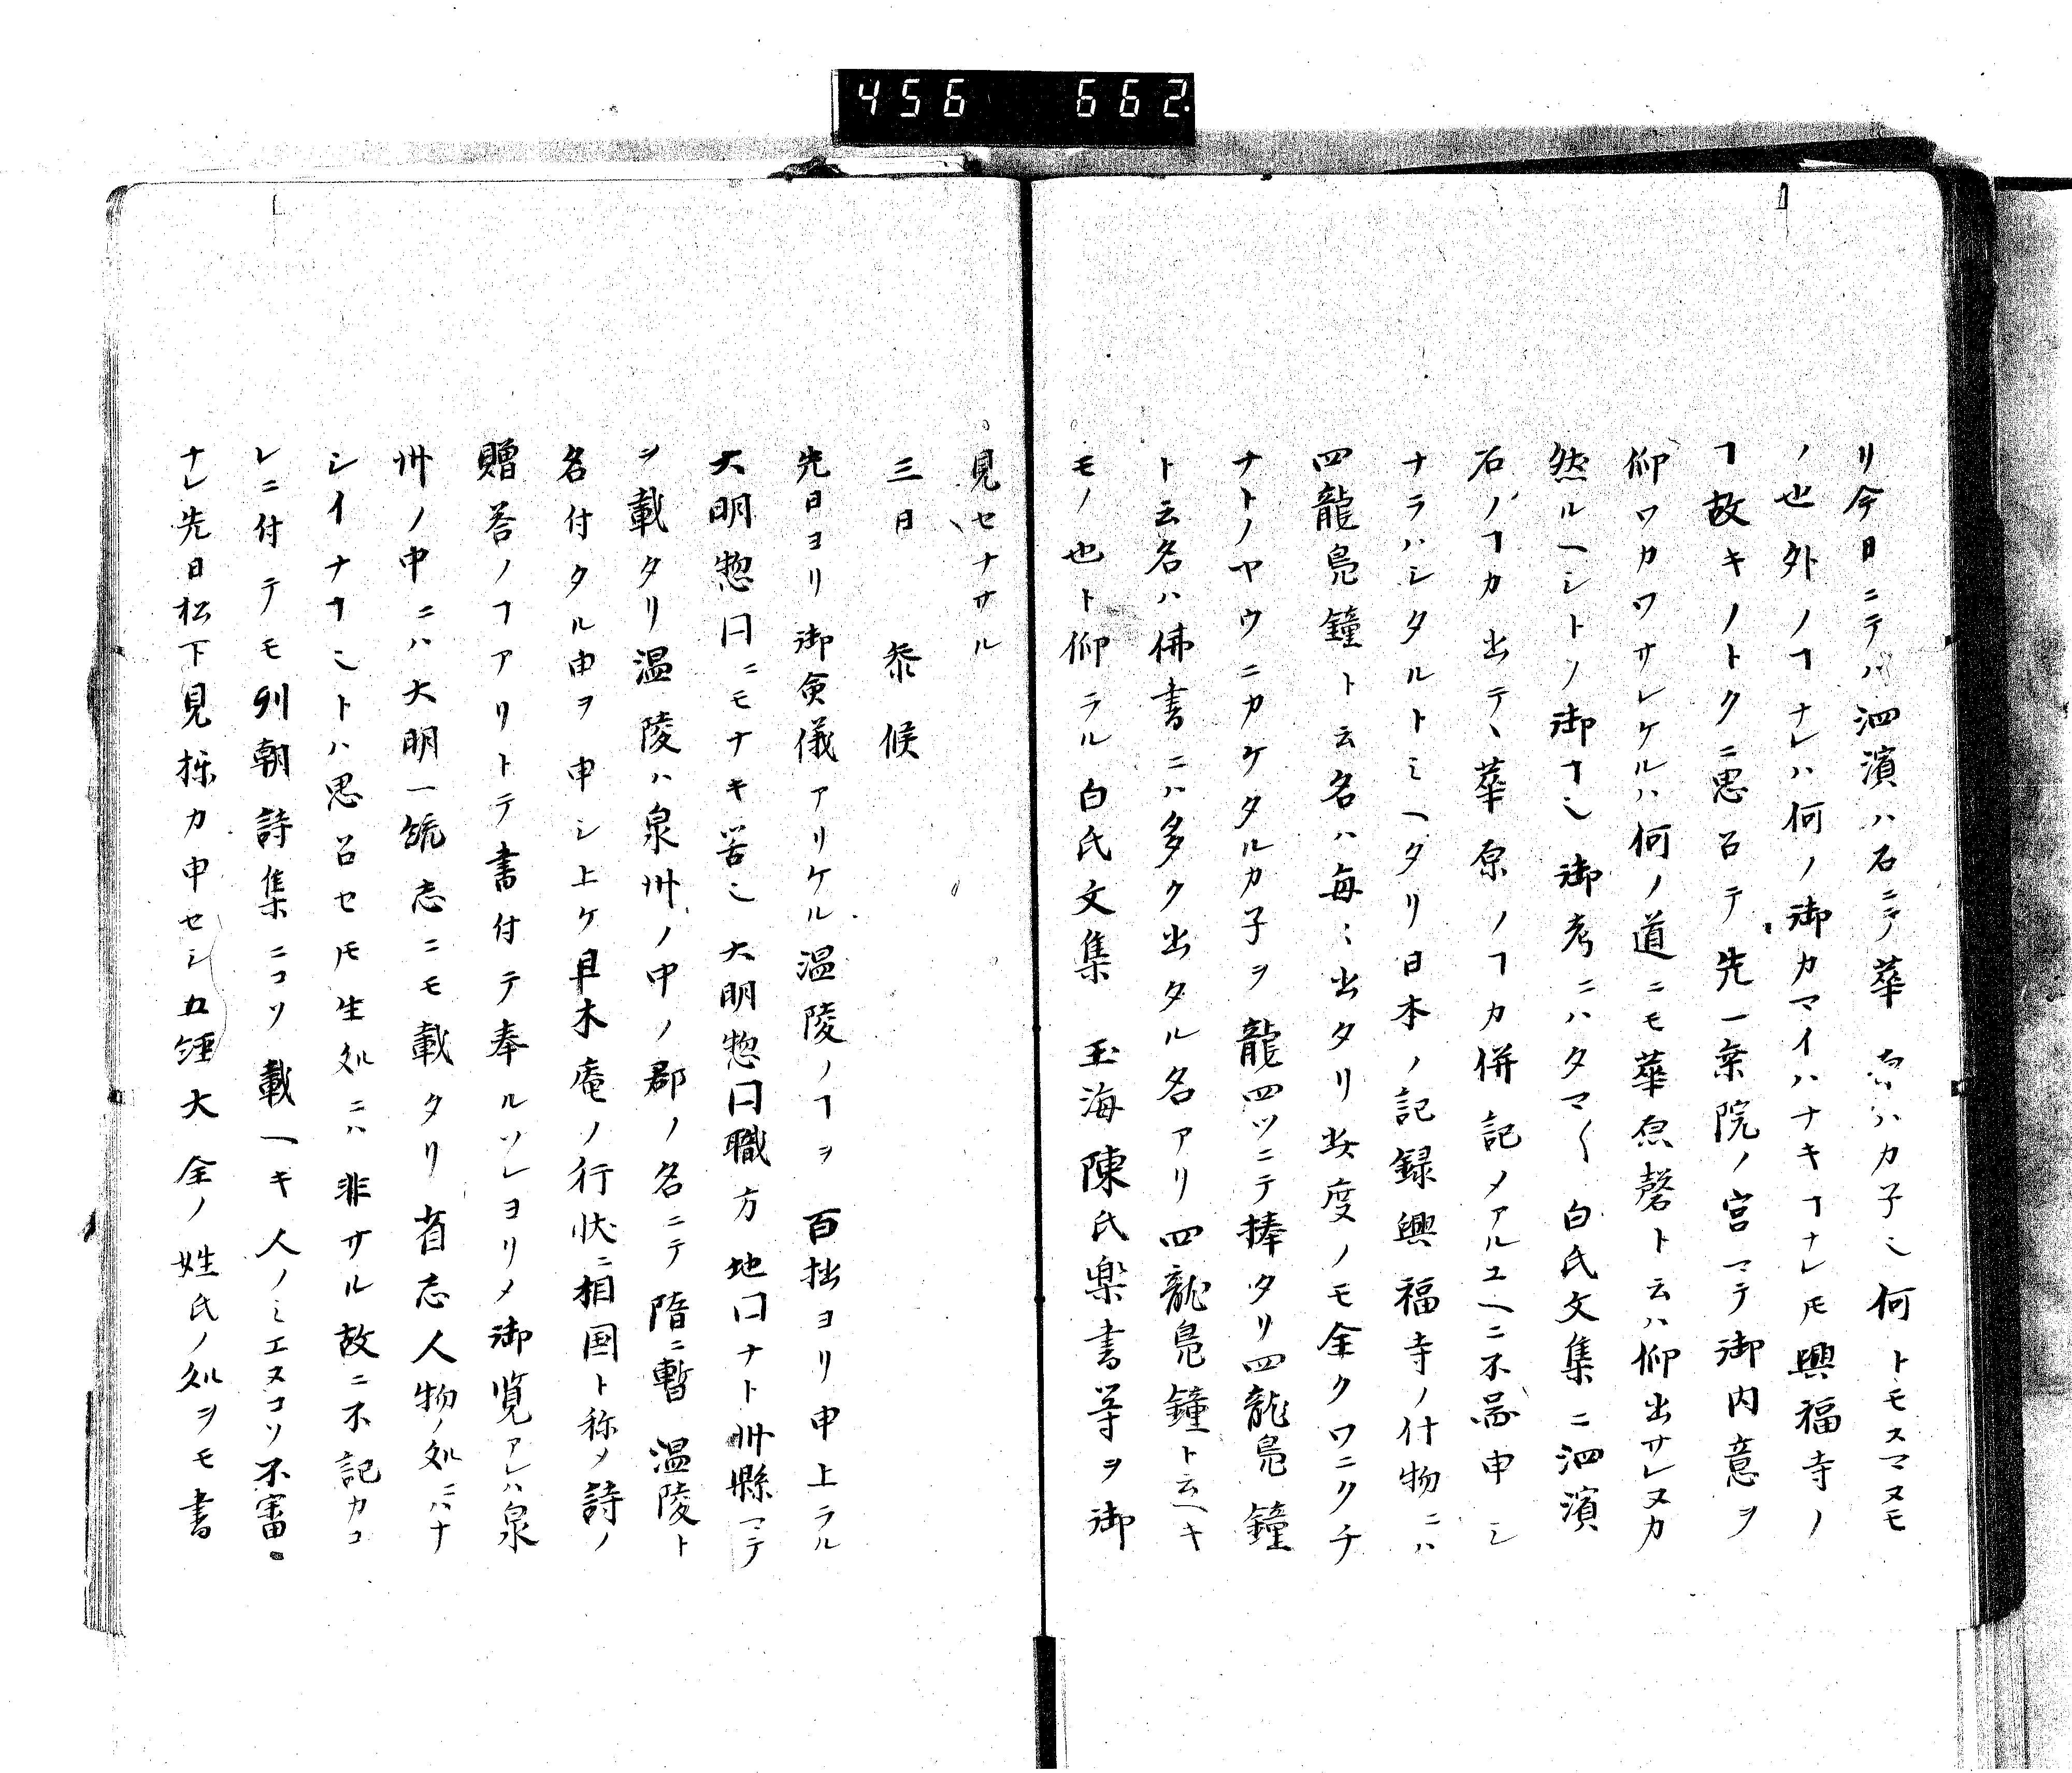 456 662
リ今日ニテハ泗濱ハ石ニテ華原ハカ子ミ何トモスマヌモ
ノ也外ノヿナレハ何ノ御カマイハナキヿナレ𪜈興福寺ノ
ヿ故キノトクニ思召テ先一乗院ノ宮マテ御内意ヲ
仰ワカワサレケルハ何ノ道ニモ華原磬ト云ハ仰出サレヌカ
然ルヘシトノ御ヿ也御考ニハタマ〱白氏文集ニ泗濱
石ノヿカ出テ、華原ノヿカ併記メアルユヘニ不图申シ
ナラハシタルトミヘタリ日本ノ記録興福寺ノ什物ニハ
四龍鳬鐘ト云名ハ毎〻出タリ此度ノモ全クワニクチ
ナトノヤウニカケタルカ子ヲ龍四ツニテ捧タリ四龍鳬鐘
ト云名ハ佛書ニハ多ク出タル名アリ四龍鳬鐘ト云ヘキ
モノ也ト仰ラル白氏文集 玉海陳氏樂書等ヲ御
見セナサル
三日 参候
先日ヨリ御僉儀アリケル温陵ノヿヲ百拙ヨリ申上ラル
大明惣目ニモナキ苦ミ大明惣目職方地目ナト州縣マテ
ヲ載タリ温陵ハ泉州ノ中ノ郡ノ名ニテ隋ニ暫温陵ト
名付タル由ヲ申シ上ケ且木庵ノ行状ニ相国ト称メ詩ノ
贈答ノヿアリトテ書付テ奉ルソレヨリメ御覧アレハ泉
州ノ中ニハ大明一統志ニモ載タリ省志人物ノ処ニハナ
シイナヿミトハ思召セ𪜈生処ニハ非サル故ニ不記カコ
レニ付テモ列朝詩集ニコソ載ヘキ人ノミエヌコソ不審
ナレ先日松下見櫟カ申セシ五経大全ノ姓氏ノ処ヲモ書